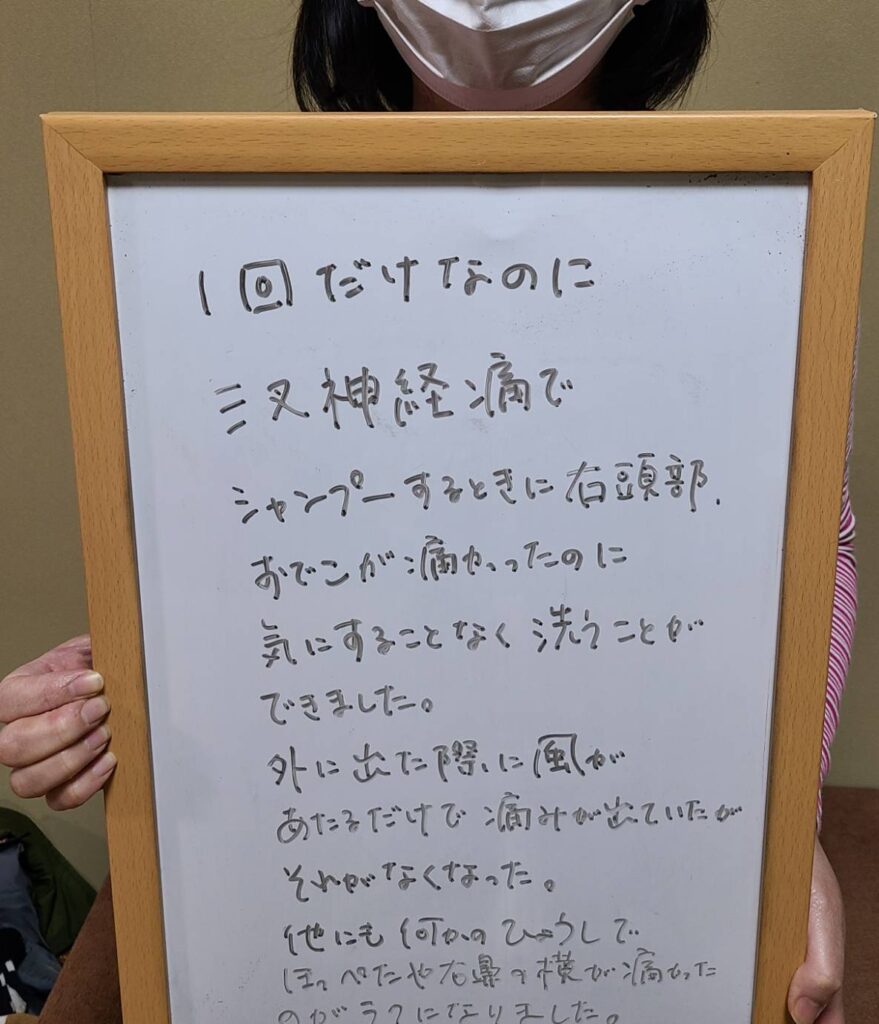 1回だけなのに
三叉神経痛で
シャンプーするときに右頭部、
おでこが痛かったのに
気にすることなく洗うことが
できました。
外に出た際に風が
あたるだけで痛みが出ていたが
それがなくなった。
他にも何かのひょうしで
ほっぺたや右鼻の横が痛かった
のがラクになりました。